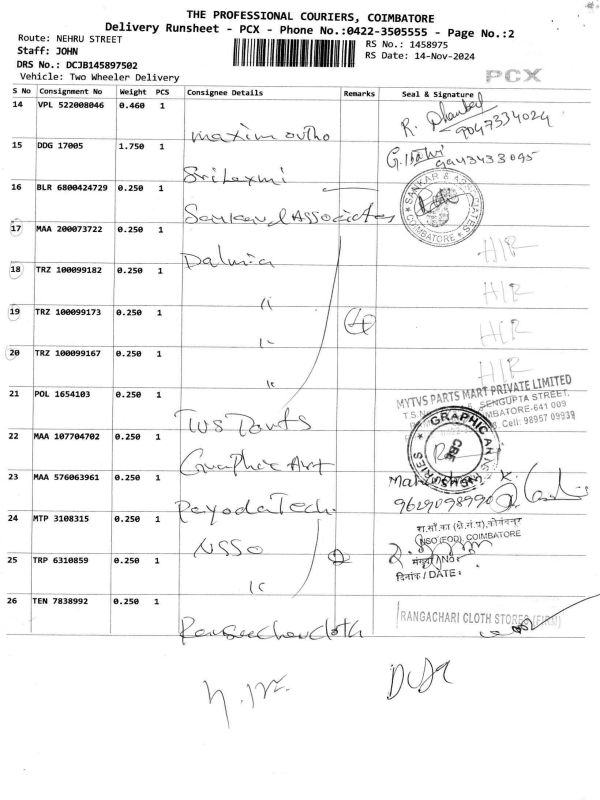 THE PROFESSIONAL COURIERS, COIMBATORE
Delivery Runsheet - PCX - Phone No.:0422-3505555 - Page No.:2
Route: NEHRU STREET
RS No.: 1458975
Staff: JOHN
RS Date: 14-Nov-2024
DRS No.: DCJB145897502
Vehicle: Two Wheeler Delivery
PCX
S No Consignment No Weight PCS Consignee Details Remarks Seal & Signature
14 VPL 522008046 0.460 1 maxim ortho R. 9047334024
15 DDG 17005 1.750 1 Sri Laxmi 9943433095
16 BLR 6800424729 0.250 1 Sankar Associates SANKAR & ASSOCIATES COIMBATORE
17 MAA 200073722 0.250 1 Dalmia H/R
18 TRZ 100099182 0.250 1 " H/R
19 TRZ 100099173 0.250 1 " 4 H/R
20 TRZ 100099167 0.250 1 " H/R
21 POL 1654103 0.250 1 TVS Parts MYTVS PARTS MART PRIVATE LIMITED
SENGUPTA STREET,
COIMBATORE-641 009
Cell: 98957 09939
22 MAA 107704702 0.250 1 Graphic Art GRAPHIC ARTS INDUSTRIES CBE
23 MAA 576063961 0.250 1 Payoda Tech. 9629098990
24 MTP 3108315 0.250 1 NSSO NSSO (FOD), COIMBATORE
25 TRP 6310859 0.250 1 " 2 संख्या/NO:
दिनांक/DATE:
26 TEN 7838992 0.250 1 Rangachari cloth RANGACHARI CLOTH STORES (FIRM)